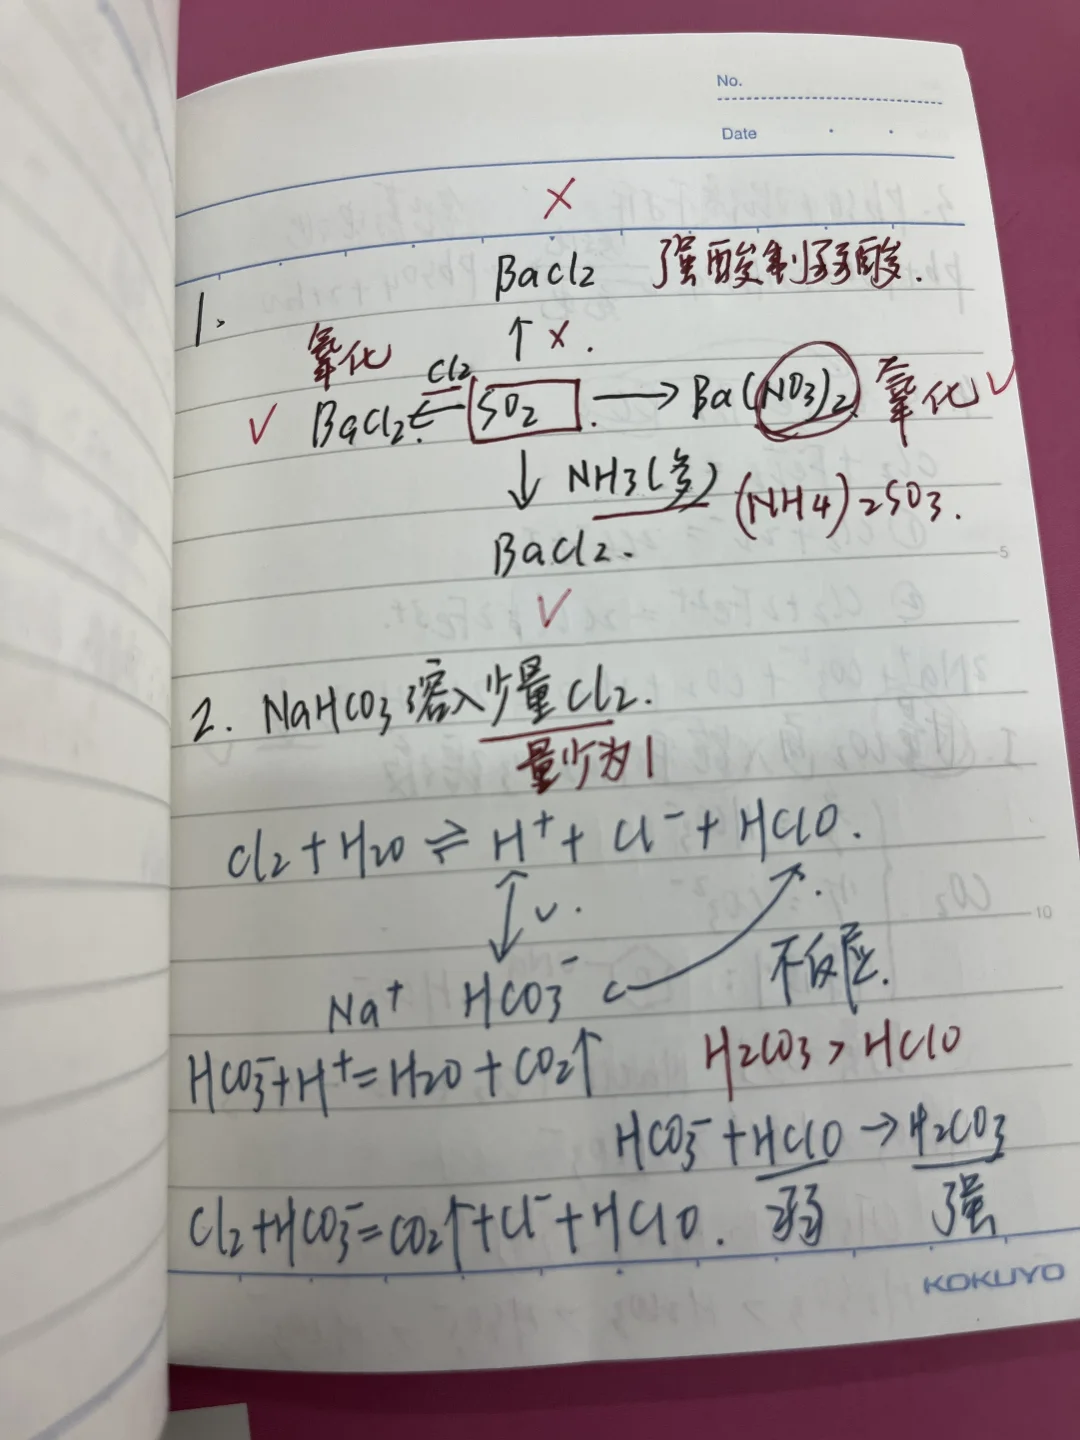 No.
Date
×
BaCl2 强酸制弱酸.
1.
氧化 ↑ ×.
Cl2
√ BaCl2. ← SO2 → Ba(NO3)2 氧化 √
↓ NH3(多) (NH4)2SO3.
BaCl2.
5
√
2. NaHCO3溶入少量Cl2.
量少为1
Cl2+H2O ⇌ H+ + Cl- + HClO.
√.
10
不反应.
Na+ HCO3-
HCO3-+H+=H2O+CO2↑ H2CO3 > HClO
HCO3- + HClO → H2CO3
弱 强
Cl2+HCO3-=CO2↑+Cl-+HClO.
KOKUYO